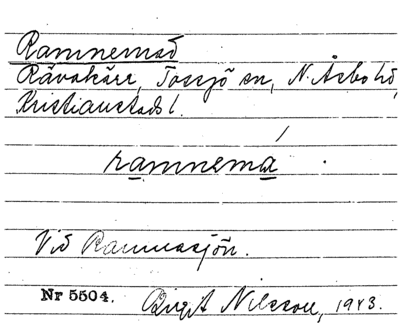 Ramnemad
Rävakärr, Tossjö sn, N. Åsbo hd,
Kristianstads l.
ramnemá
Vid Ramnasjön.
Nr 5504. Birgit Nilsson, 1943.